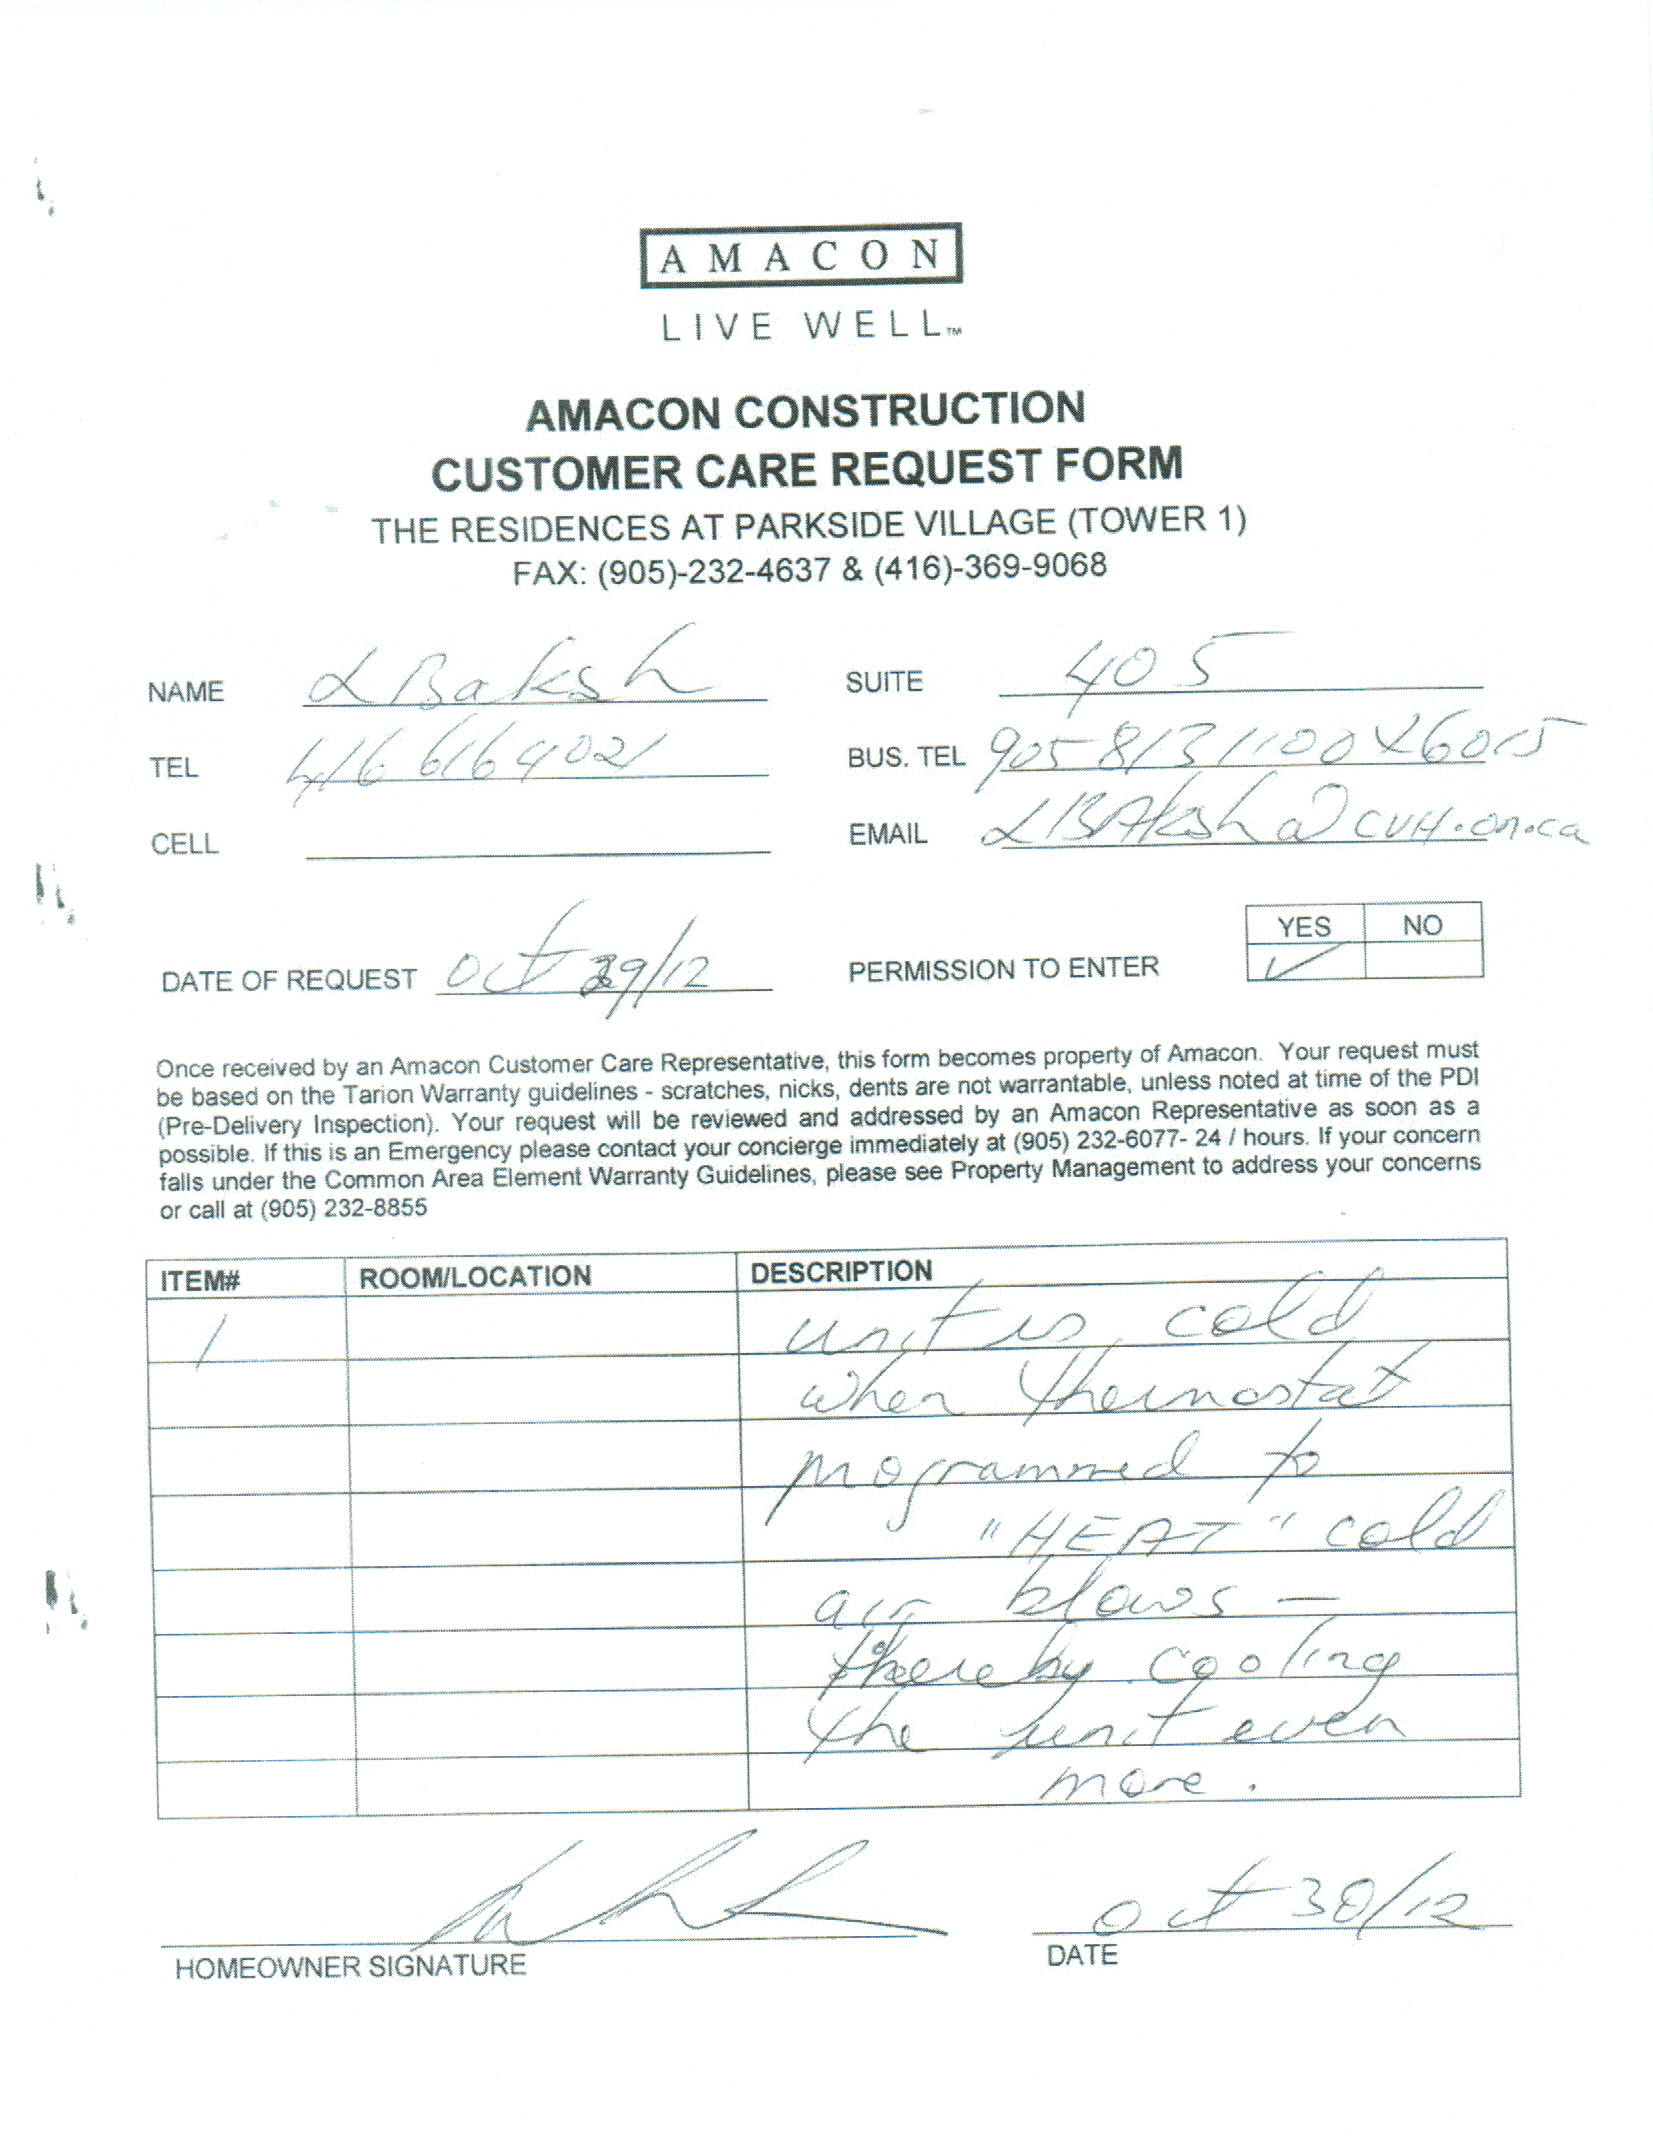 AMACON
LIVE WELL™
AMACON CONSTRUCTION
CUSTOMER CARE REQUEST FORM
THE RESIDENCES AT PARKSIDE VILLAGE (TOWER 1)
FAX: (905)-232-4637 & (416)-369-9068
NAME L Baksh SUITE 405
TEL 416 616 4021 BUS. TEL 905 813 1100 X6015
CELL EMAIL LBAksh@CVH.on.ca
YES NO
DATE OF REQUEST Oct 29/12 PERMISSION TO ENTER ✓
Once received by an Amacon Customer Care Representative, this form becomes property of Amacon. Your request must
be based on the Tarion Warranty guidelines - scratches, nicks, dents are not warrantable, unless noted at time of the PDI
(Pre-Delivery Inspection). Your request will be reviewed and addressed by an Amacon Representative as soon as a
possible. If this is an Emergency please contact your concierge immediately at (905) 232-6077- 24 / hours. If your concern
falls under the Common Area Element Warranty Guidelines, please see Property Management to address your concerns
or call at (905) 232-8855
ITEM# ROOM/LOCATION DESCRIPTION
1 unit is cold
when thermostat
programmed to
"HEAT" cold
air blows —
thereby cooling
the unit even
more.
Oct 30/12
HOMEOWNER SIGNATURE DATE